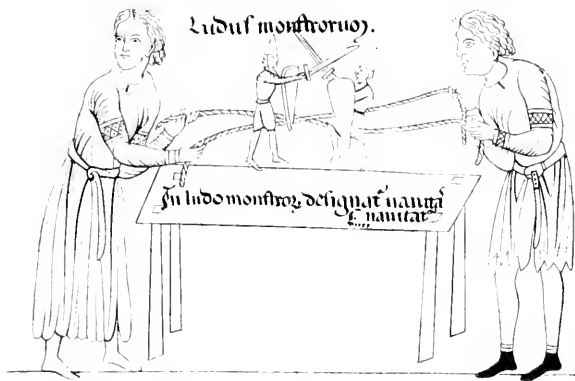 Ludus monstroruʒ.
In ludo monstroꝝ designatˀ uanitaˢ
uanitatˀ